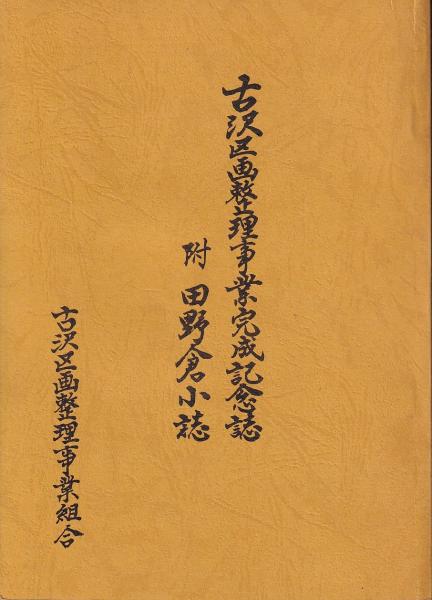 古沢区画整理事業完成記念誌
附 田野倉小誌
古沢区画整理事業組合